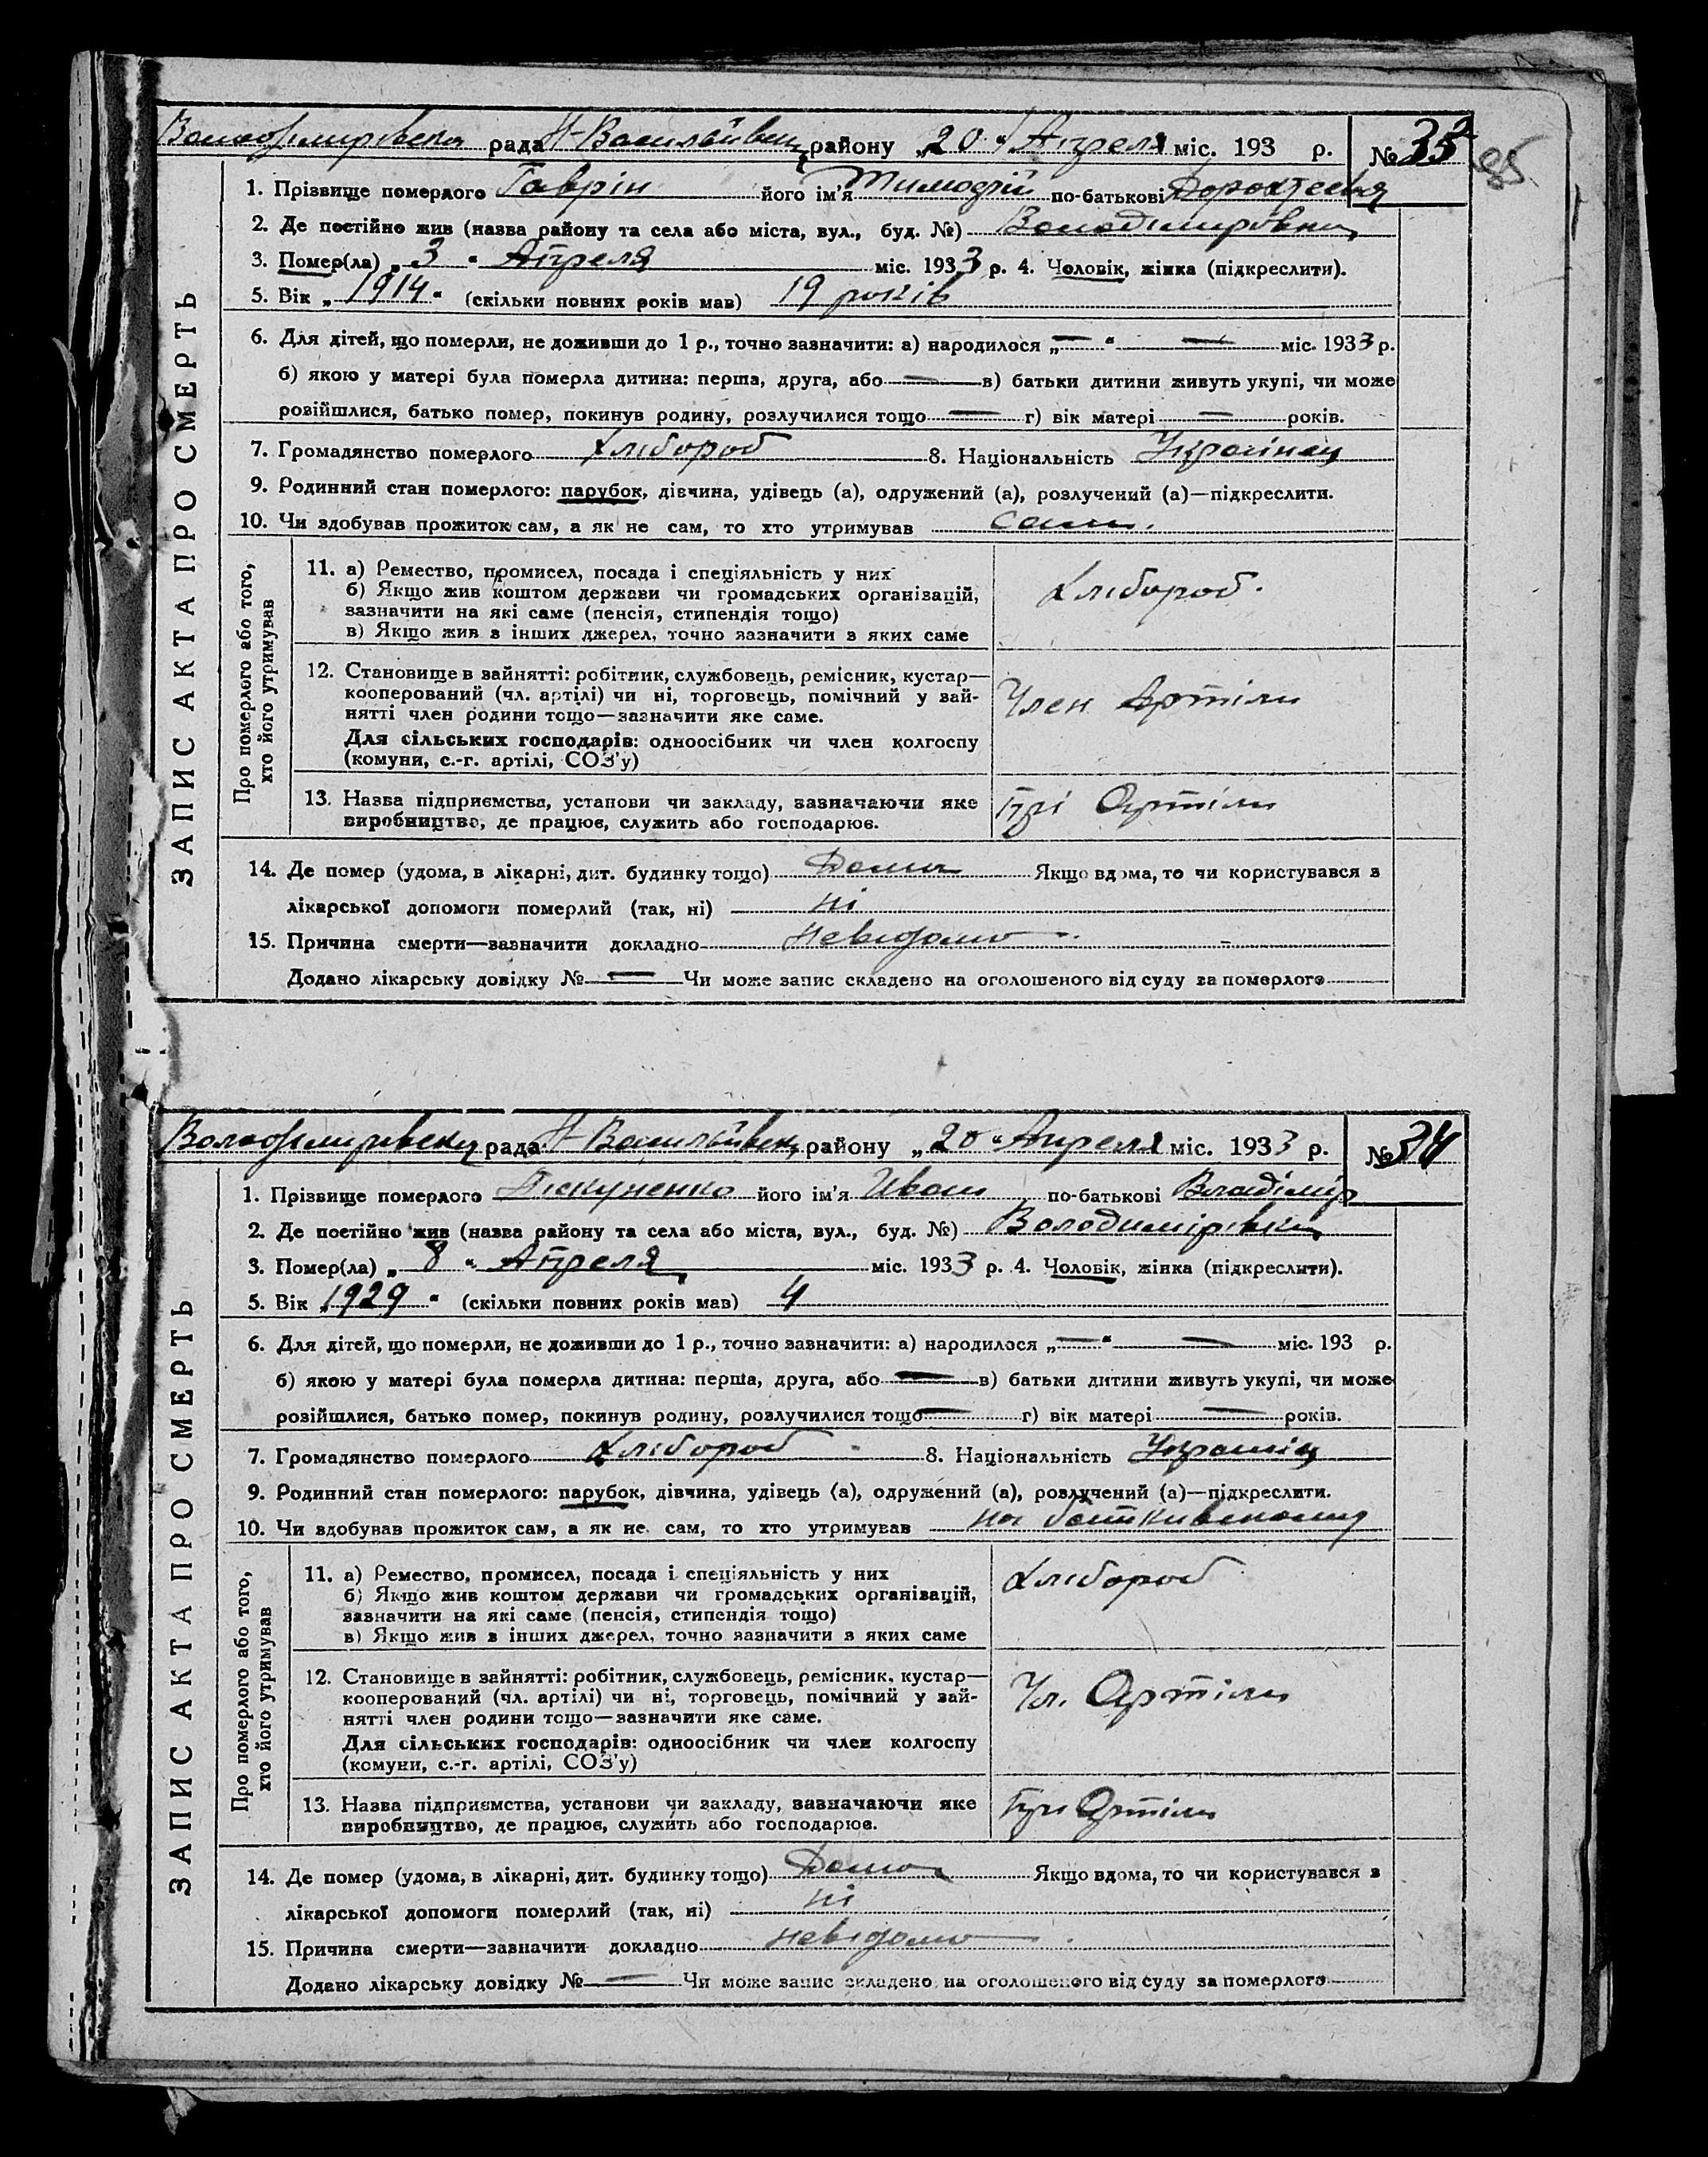 Володимирівська рада Н-Васильівськ району „20“ Апреля міс. 193 р. № 33
85
1. Прізвище померлого Гаврін його ім'я Тимофій по-батькові
2. Де постійно жив (назва району та села або міста, вул., буд. №) Володимирівка
3. Помер(ла) „3“ Апреля міс. 1933 р. 4. Чоловік, жінка (підкреслити).
5. Вік „1914“ (скільки повних років мав) 19 років
6. Для дітей, що померли, не доживши до 1 р., точно зазначити: а) народилося „—“ — міс. 1933 р.
б) якою у матері була померла дитина: перша, друга, або — в) батьки дитини живуть укупі, чи може
розійшлися, батько помер, покинув родину, розлучилися тощо — г) вік матері — років.
7. Громадянство померлого Хлібороб 8. Національність Українец
9. Родинний стан померлого: парубок, дівчина, удівець (а), одружений (а), розлучений (а)—підкреслити.
10. Чи здобував прожиток сам, а як не сам, то хто утримував сам.
ЗАПИС АКТА ПРО СМЕРТЬ
Про померлого або того,
хто його утримував
11. а) Ремество, промисел, посада і спеціяльність у них
б) Якщо жив коштом держави чи громадських організацій,
зазначити на які саме (пенсія, стипендія тощо)
в) Якщо жив з інших джерел, точно зазначити з яких саме
Хлібороб.
12. Становище в зайнятті: робітник, службовець, ремісник, кустар—
кооперований (чл. артілі) чи ні, торговець, помічний у зай-
нятті член родини тощо—зазначити яке саме.
Для сільських господарів: одноосібник чи член колгоспу
(комуни, с.-г. артілі, СОЗ'у)
Член Артіли
13. Назва підприємства, установи чи закладу, зазначаючи яке
виробництво, де працює, служить або господарює.
При Артіли
14. Де помер (удома, в лікарні, дит. будинку тощо) Дома Якщо вдома, то чи користувався з
лікарської допомоги померлий (так, ні) ні
15. Причина смерти—зазначити докладно Невідомо
Додано лікарську довідку № — Чи може запис складено на оголошеного від суду за померлого
Володимирівська рада Н-Васильівськ району „20“ Апреля міс. 1933 р. № 34
1. Прізвище померлого Пискуненко його ім'я Иван по-батькові Владімір
2. Де постійно жив (назва району та села або міста, вул., буд. №) Володимирівка
3. Помер(ла) „8“ Апреля міс. 1933 р. 4. Чоловік, жінка (підкреслити).
5. Вік „1929“ (скільки повних років мав) 4
6. Для дітей, що померли, не доживши до 1 р., точно зазначити: а) народилося „—“ — міс. 193 р.
б) якою у матері була померла дитина: перша, друга, або — в) батьки дитини живуть укупі, чи може
розійшлися, батько помер, покинув родину, розлучилися тощо — г) вік матері — років.
7. Громадянство померлого Хлібороб 8. Національність Українец
9. Родинний стан померлого: парубок, дівчина, удівець (а), одружений (а), розлучений (а)—підкреслити.
10. Чи здобував прожиток сам, а як не сам, то хто утримував на батькивському
ЗАПИС АКТА ПРО СМЕРТЬ
Про померлого або того,
хто його утримував
11. а) Ремество, промисел, посада і спеціяльність у них
б) Якщо жив коштом держави чи громадських організацій,
зазначити на які саме (пенсія, стипендія тощо)
в) Якщо жив з інших джерел, точно зазначити з яких саме
Хлібороб
12. Становище в зайнятті: робітник, службовець, ремісник, кустар—
кооперований (чл. артілі) чи ні, торговець, помічний у зай-
нятті член родини тощо—зазначити яке саме.
Для сільських господарів: одноосібник чи член колгоспу
(комуни, с.-г. артілі, СОЗ'у)
Чл. Артіли
13. Назва підприємства, установи чи закладу, зазначаючи яке
виробництво, де працює, служить або господарює.
При Артіли
14. Де помер (удома, в лікарні, дит. будинку тощо) Дома Якщо вдома, то чи користувався з
лікарської допомоги померлий (так, ні) ні
15. Причина смерти—зазначити докладно невідомо
Додано лікарську довідку № — Чи може запис складено на оголошеного від суду за померлого